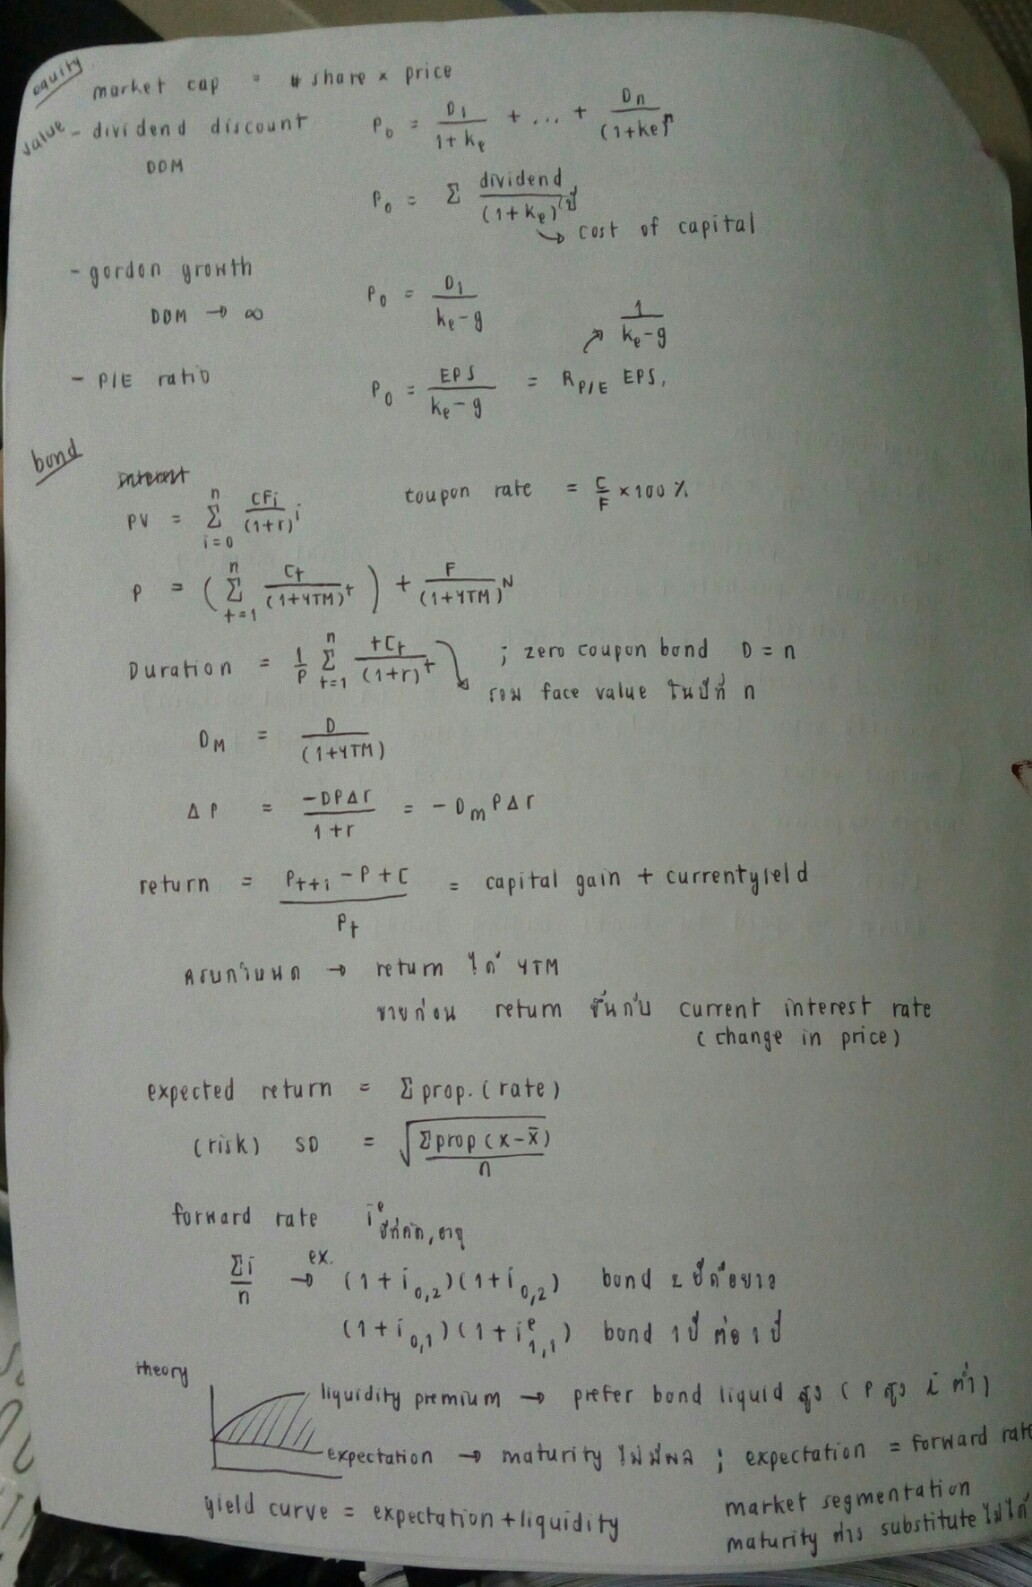 equity
market cap = # share × price
value - dividend discount P₀ = D₁/(1+kₑ) + ... + Dn/(1+ke)ⁿ
DDM
P₀ = Σ dividend/(1+kₑ)^(ปี)
↳ cost of capital
- gordon growth P₀ = D₁/(kₑ-g)
DDM → ∞
1/(kₑ-g)
- P/E ratio P₀ = EPS/(kₑ-g) = R_P/E EPS₁
bond
interest
PV = Σ_{i=0}^{n} CFᵢ/(1+r)^i coupon rate = C/F × 100 %
P = (Σ_{t=1}^{n} Ct/(1+YTM)^t) + F/(1+YTM)^N
Duration = 1/P Σ_{t=1}^{n} tCt/(1+r)^t ; zero coupon bond D = n
รวม face value ในปีที่ n
D_M = D/(1+YTM)
ΔP = -DPΔr/(1+r) = -D_m PΔr
return = (P_{t+i} - P + C)/P_t = capital gain + currentyield
ครบกำหนด → return ได้ YTM
ขายก่อน return ขึ้นกับ current interest rate
(change in price)
expected return = Σ prop. (rate)
(risk) SD = √(Σprop(x-x̄)/n)
forward rate i^e ปีที่คิด, อายุ
Σi/n → ex. (1+i₀,₂)(1+i₀,₂) bond 2 ปีถือยาว
(1+i₀,₁)(1+i^e₁,₁) bond 1 ปี ต่อ 1 ปี
theory
liquidity premium → prefer bond liquid สูง (P สูง i ต่ำ)
expectation → maturity ไม่มีผล ; expectation = forward rate
market segmentation
yield curve = expectation + liquidity
maturity ต่าง substitute ไม่ได้